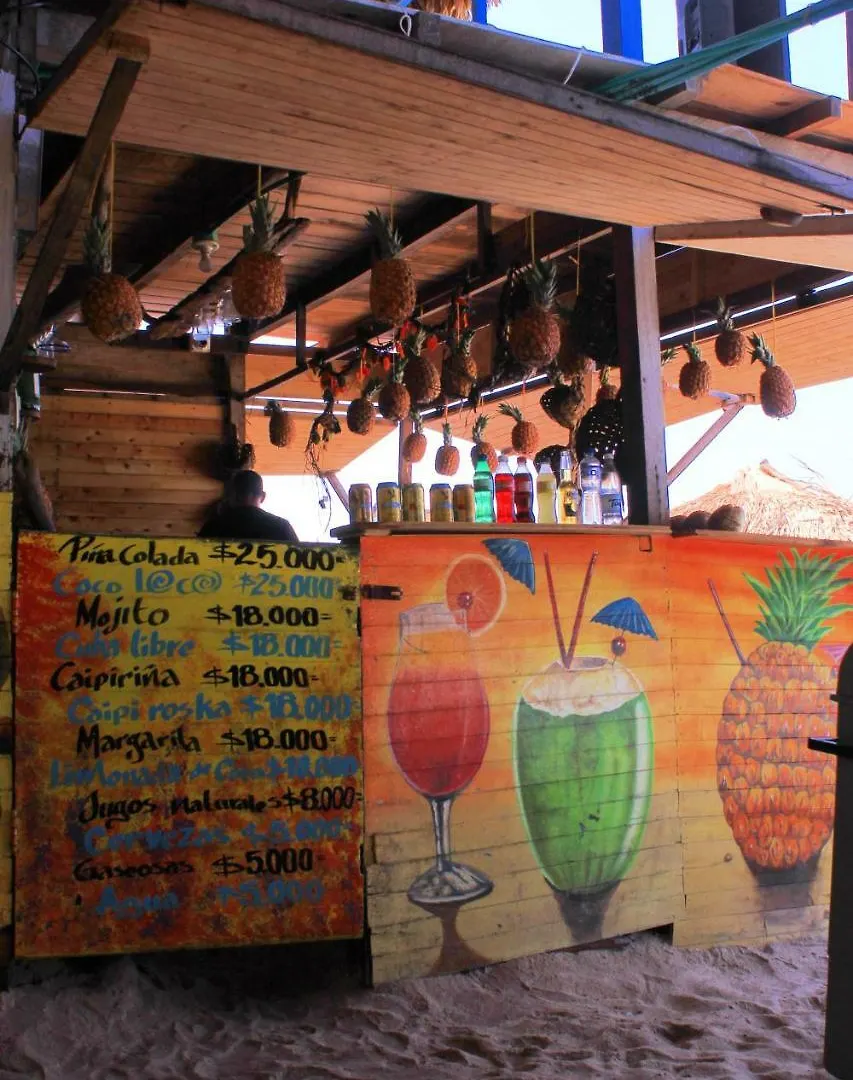 Piña Colada $25.000=
Coco l@c@ $25.000
Mojito $18.000=
Cuba libre $18.000
Caipiriña $18.000=
Caipi roska $18.000
Margarita $18.000=
Limonada de Coco
Jugos naturales $8.000=
Cervezas $5.000
Gaseosas $5.000=
Agua $5.000